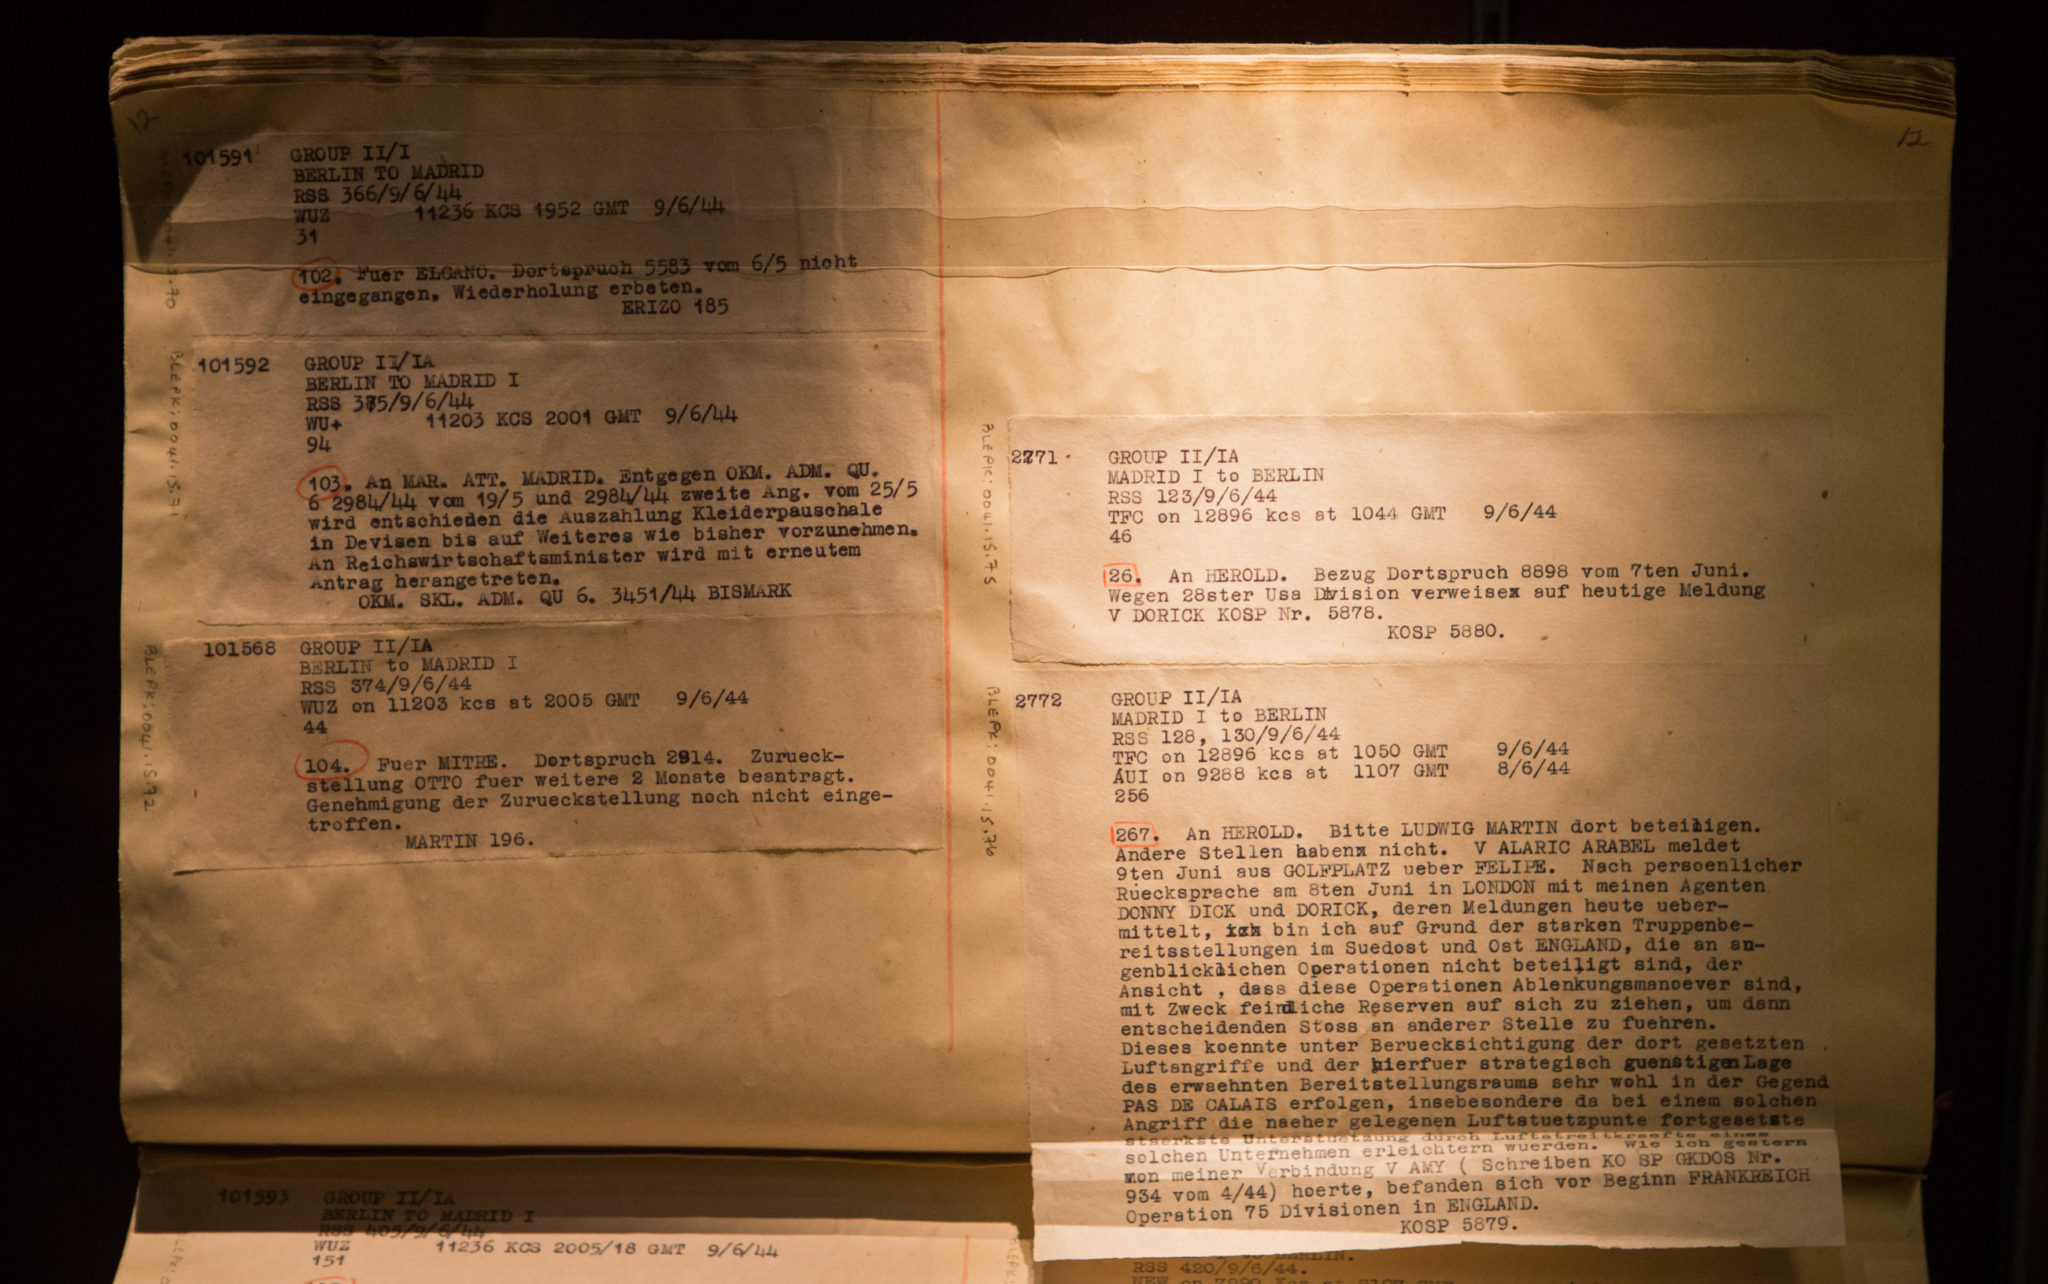 12
101591 GROUP II/I
BERLIN TO MADRID
RSS 366/9/6/44
WUZ 11236 KCS 1952 GMT 9/6/44
31
102. Fuer ELCANO. Dortspruch 5583 vom 6/5 nicht
eingegangen. Wiederholung erbeten.
ERIZO 185
BLEPK:0041.15.71
101592 GROUP II/IA
BERLIN TO MADRID I
RSS 375/9/6/44
WU+ 11203 KCS 2001 GMT 9/6/44
94
103. An MAR. ATT. MADRID. Entgegen OKM. ADM. QU.
6 2984/44 vom 19/5 und 2984/44 zweite Ang. vom 25/5
wird entschieden die Auszahlung Kleiderpauschale
in Devisen bis auf Weiteres wie bisher vorzunehmen.
An Reichswirtschaftsminister wird mit erneutem
Antrag herangetreten.
OKM. SKL. ADM. QU 6. 3451/44 BISMARK
BLEPK:0041.15.72
101568 GROUP II/IA
BERLIN to MADRID I
RSS 374/9/6/44
WUZ on 11203 kcs at 2005 GMT 9/6/44
44
104. Fuer MITRE. Dortspruch 2914. Zurueck-
stellung OTTO fuer weitere 2 Monate beantragt.
Genehmigung der Zurueckstellung noch nicht einge-
troffen.
MARTIN 196.
101593 GROUP II/IA
BERLIN TO MADRID I
RSS 405/9/6/44
WUZ 11236 KCS 2005/18 GMT 9/6/44
151
12
BLEPK:0041.15.75
2771 GROUP II/IA
MADRID I to BERLIN
RSS 123/9/6/44
TFC on 12896 kcs at 1044 GMT 9/6/44
46
26. An HEROLD. Bezug Dortspruch 8898 vom 7ten Juni.
Wegen 28ster Usa Division verweisex auf heutige Meldung
V DORICK KOSP Nr. 5878.
KOSP 5880.
BLEPK:0041.15.76
2772 GROUP II/IA
MADRID I to BERLIN
RSS 128, 130/9/6/44
TFC on 12896 kcs at 1050 GMT 9/6/44
AUI on 9288 kcs at 1107 GMT 8/6/44
256
267. An HEROLD. Bitte LUDWIG MARTIN dort beteiligen.
Andere Stellen habenx nicht. V ALARIC ARABEL meldet
9ten Juni aus GOLFPLATZ ueber FELIPE. Nach persoenlicher
Ruecksprache am 8ten Juni in LONDON mit meinen Agenten
DONNY DICK und DORICK, deren Meldungen heute ueber-
mittelt, bin ich auf Grund der starken Truppenbe-
reitsstellungen im Suedost und Ost ENGLAND, die an an-
genblicklichen Operationen nicht beteiligt sind, der
Ansicht , dass diese Operationen Ablenkungsmanoever sind,
mit Zweck feindliche Reserven auf sich zu ziehen, um dann
entscheidenden Stoss an anderer Stelle zu fuehren.
Dieses koennte unter Beruecksichtigung der dort gesetzten
Luftangriffe und der hierfuer strategisch guenstigen Lage
des erwaehnten Bereitstellungsraums sehr wohl in der Gegend
PAS DE CALAIS erfolgen, insbesondere da bei einem solchen
Angriff die naeher gelegenen Luftstuetzpunte fortgesetzte
staerkste Unterstuetzung durch Luftstreitkraefte eines
solchen Unternehmen erleichtern wuerden. Wie ich gestern
von meiner Verbindung V AMY ( Schreiben KO SP GKDOS Nr.
934 vom 4/44) hoerte, befanden sich vor Beginn FRANKREICH
Operation 75 Divisionen in ENGLAND.
KOSP 5879.
BERLIN.
RSS 420/9/6/44.